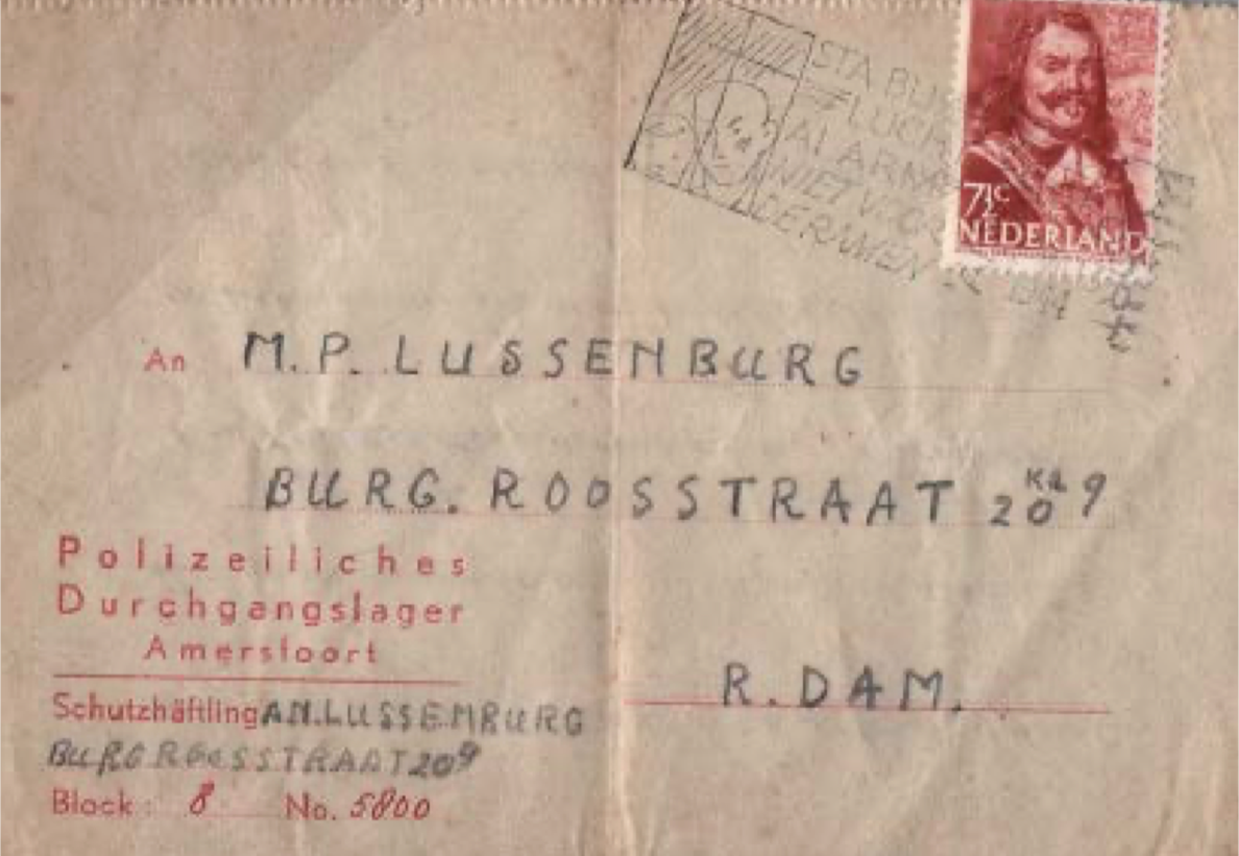 STA BIJ
VLUCH
AI ARM
NIET VOO
DERWIEN
7½c
NEDERLAND
1944
An M.P. LUSSENBURG
BURG. ROOSSTRAAT 20 9
Polizeiliches
Durchgangslager
Amersfoort
R.DAM.
Schutzhäftling A.N. LUSSENBURG
BURG ROOSSTRAAT 209
Block: 8 No. 5800